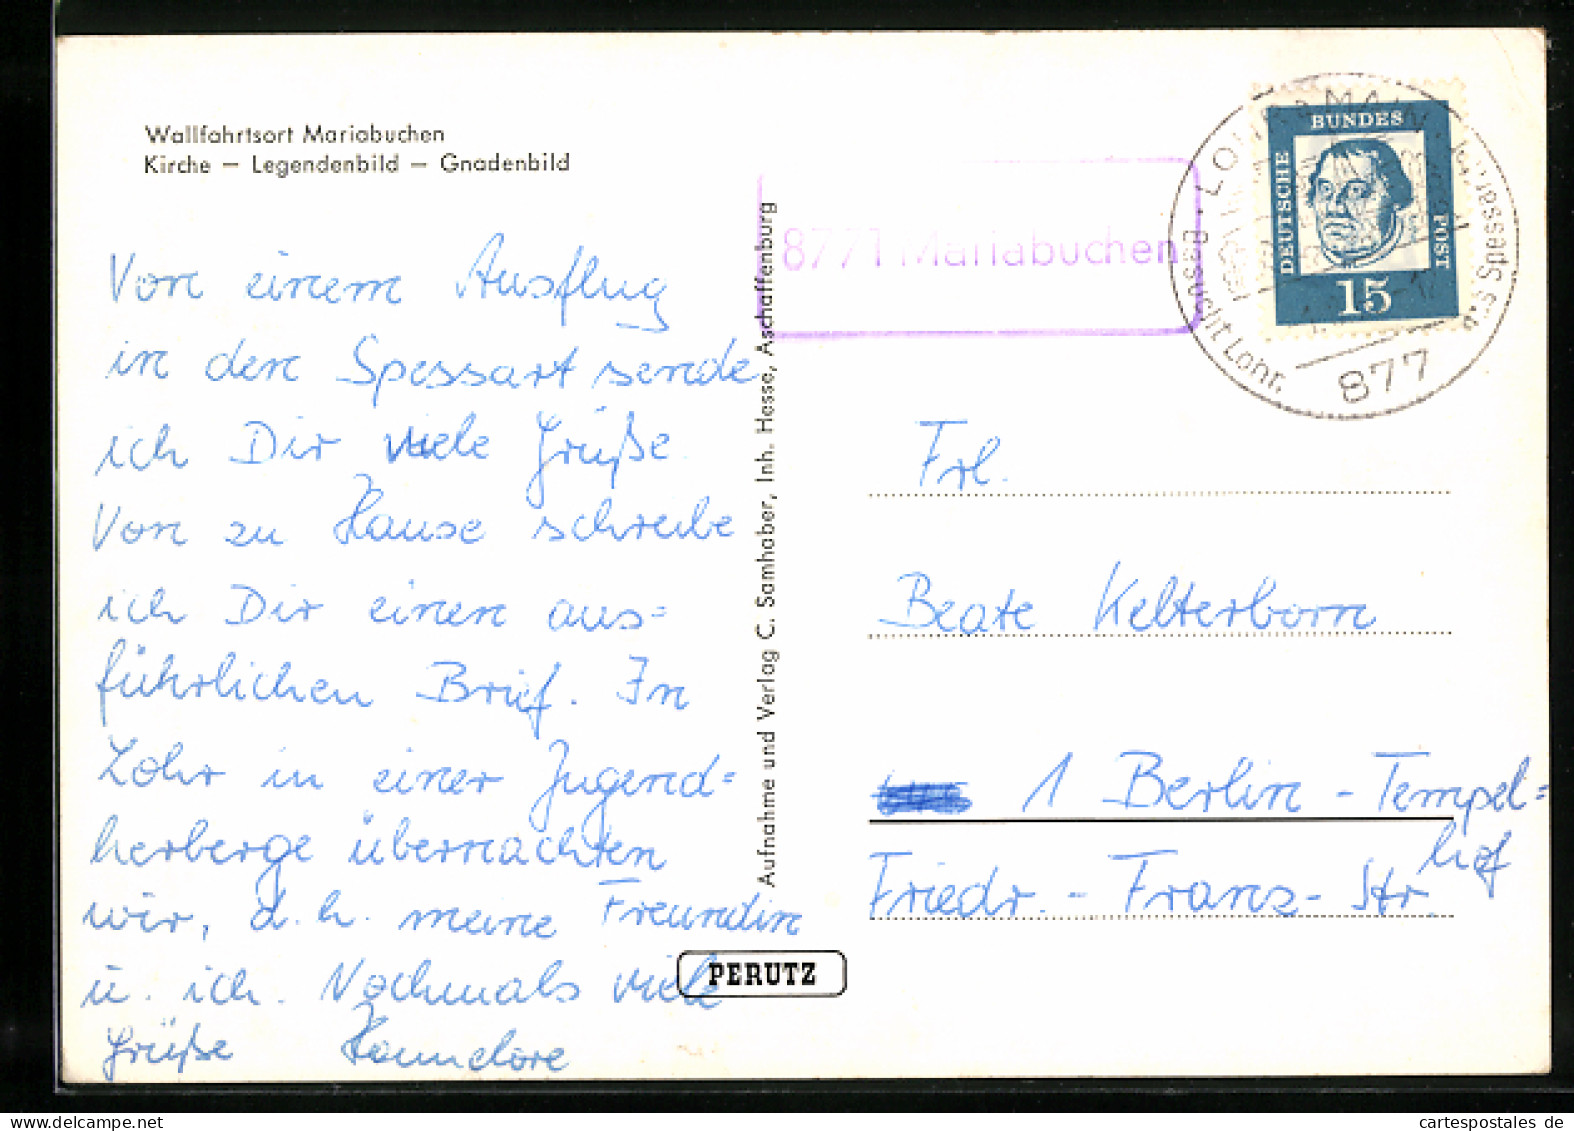 Wallfahrtsort Mariabuchen
Kirche – Legendenbild – Gnadenbild
Von einem Ausflug
in den Spessart sende
ich Dir viele Grüße.
Von zu Hause schreibe
ich Dir einen aus=
führlichen Brief. In
Lohr in einer Jugend=
herberge übernachten
wir, d.h. meine Freundin
u. ich. Nochmals viele
Grüße Hannelore
Aufnahme und Verlag C. Samhaber, Inh. Hesse, Aschaffenburg
PERUTZ
8771 Mariabuchen
DEUTSCHE
BUNDES
POST
15
Besucht Lohr,
877
Frl.
Beate Kelterborn
1 Berlin - Tempel=
hof
Friedr. - Franz - Str.
cartespostales.de